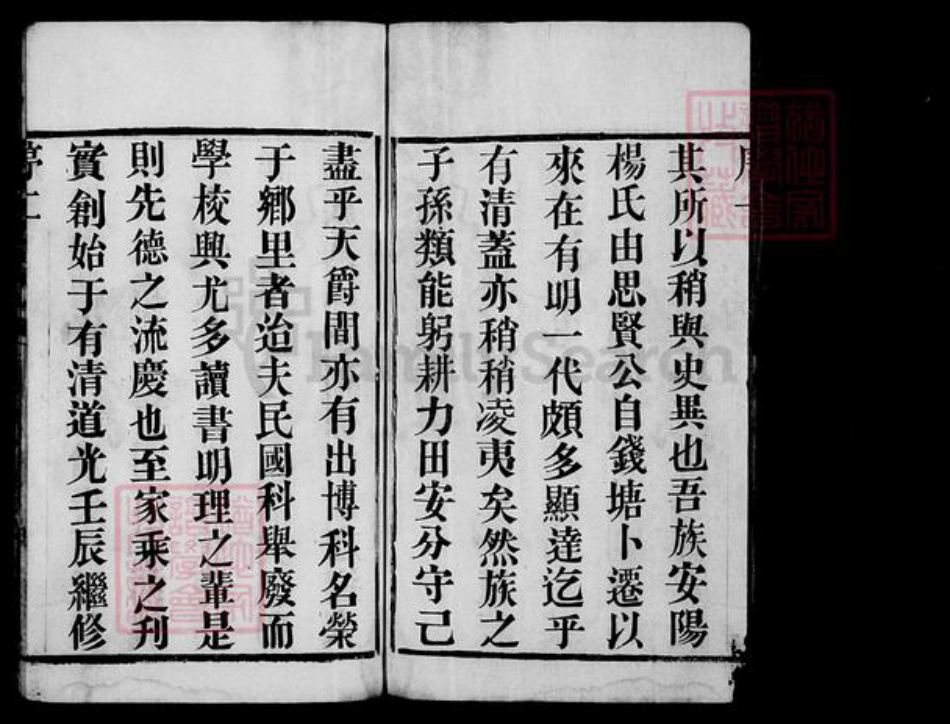 其所以稍與史異也吾族安陽
楊氏由思賢公自錢塘卜遷以
來在有明一代頗多顯達迄乎
有清蓋亦稍稍凌夷矣然族之
子孫類能躬耕力田安分守己
盡乎天爵間亦有出博科名榮
于鄉里者迨夫民國科舉廢而
學校興尤多讀書明理之輩是
則先德之流慶也至家乘之刊
實創始于有清道光壬辰繼修
Family Search